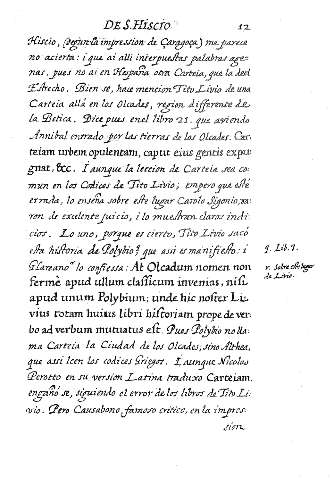 DE S. HISCIO. 12
Hiscio, (segun la impression de Çaragoça) me parece
no acierta: i que ai alli interpuestas palabras age-
nas, pues no ai en Hespaña otra Carteia, que la del
Estrecho. Bien se, hace mencion Tito Livio de una
Carteia allá en los Olcades, region differente de
la Betica. Dice pues en el libro 21. que aviendo
Annibal entrado por las tierras de los Olcades. Car-
teiam urbem opulentam, caput eius gentis expu
gnat, &c. I aunque la leccion de Carteia sea co-
mun en los Codices de Tito Livio; empero que esté
errada, lo enseña sobre este lugar Carolo Sigonio, va
ron de excelente juicio, i lo muestran claros indi
cios. Lo uno, porque es cierto, Tito Livio sacó
esta historia de Polybio, q que assi es manifiesto: i
Glareano r lo confiessa: At Olcadum nomen non
fermè apud ullum classicum invenias, nisi
apud unum Polybium; unde hic noster Li-
vius totam huius libri historiam prope de ver
bo ad verbum mutuatus est. Pues Polybio no lla-
ma Carteia la Ciudad de los Olcades, sino Althea,
que assi leen los codices Griegos. I aunque Nicolao
Perotto en su version Latina traduxo Carteiam,
engañóse, siguiendo el error de los libros de Tito Li-
vio. Pero Causabono, famoso critico, en la impres-
sion
q. Lib. 3.
r. Sobre este lugar
de Livio.